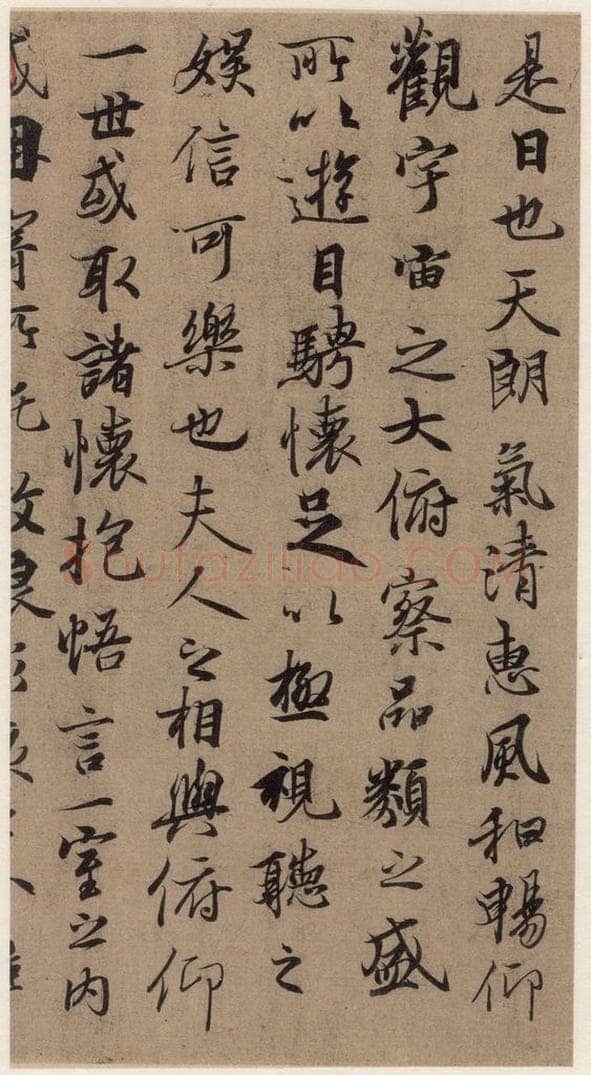 是日也天朗氣清惠風和暢仰
觀宇宙之大俯察品類之盛
所以遊目騁懷足以極視聽之
娛信可樂也夫人之相與俯仰
一世或取諸懷抱悟言一室之内
Shufaziliao.COM